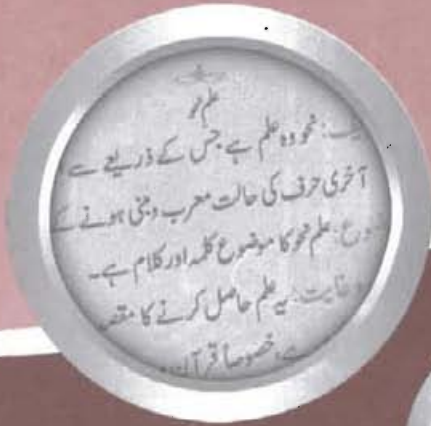 علم نحو
یف: نحو وہ علم ہے جس کے ذریعے سے
آخری حرف کی حالت معرب و مبنی ہونے کے
وع: علم نحو کا موضوع کلمہ اور کلام ہے۔
و غایت: یہ علم حاصل کرنے کا مقص
ہے، خصوصاً قرآن